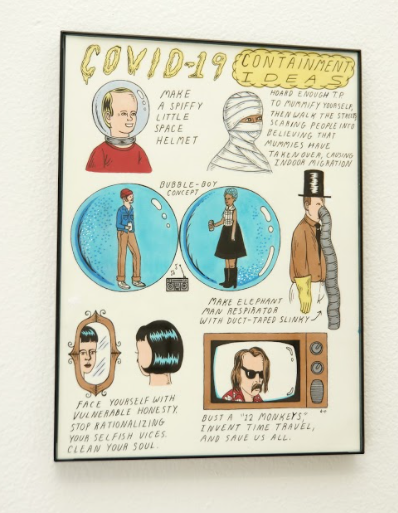 COVID-19
CONTAINMENT
IDEAS
MAKE
A SPIFFY
LITTLE
SPACE
HELMET
HOARD ENOUGH T.P.
TO MUMMIFY YOURSELF,
THEN WALK THE STREETS
SCARING PEOPLE INTO
BELIEVING THAT
MUMMIES HAVE
TAKEN OVER, CAUSING
INDOOR MIGRATION.
BUBBLE-BOY
CONCEPT
MAKE ELEPHANT
MAN RESPIRATOR
WITH DUCT-TAPED SLINKY
FACE YOURSELF WITH
VULNERABLE HONESTY,
STOP RATIONALIZING
YOUR SELFISH VICES.
CLEAN YOUR SOUL.
BUST A "12 MONKEYS,"
INVENT TIME TRAVEL,
AND SAVE US ALL.